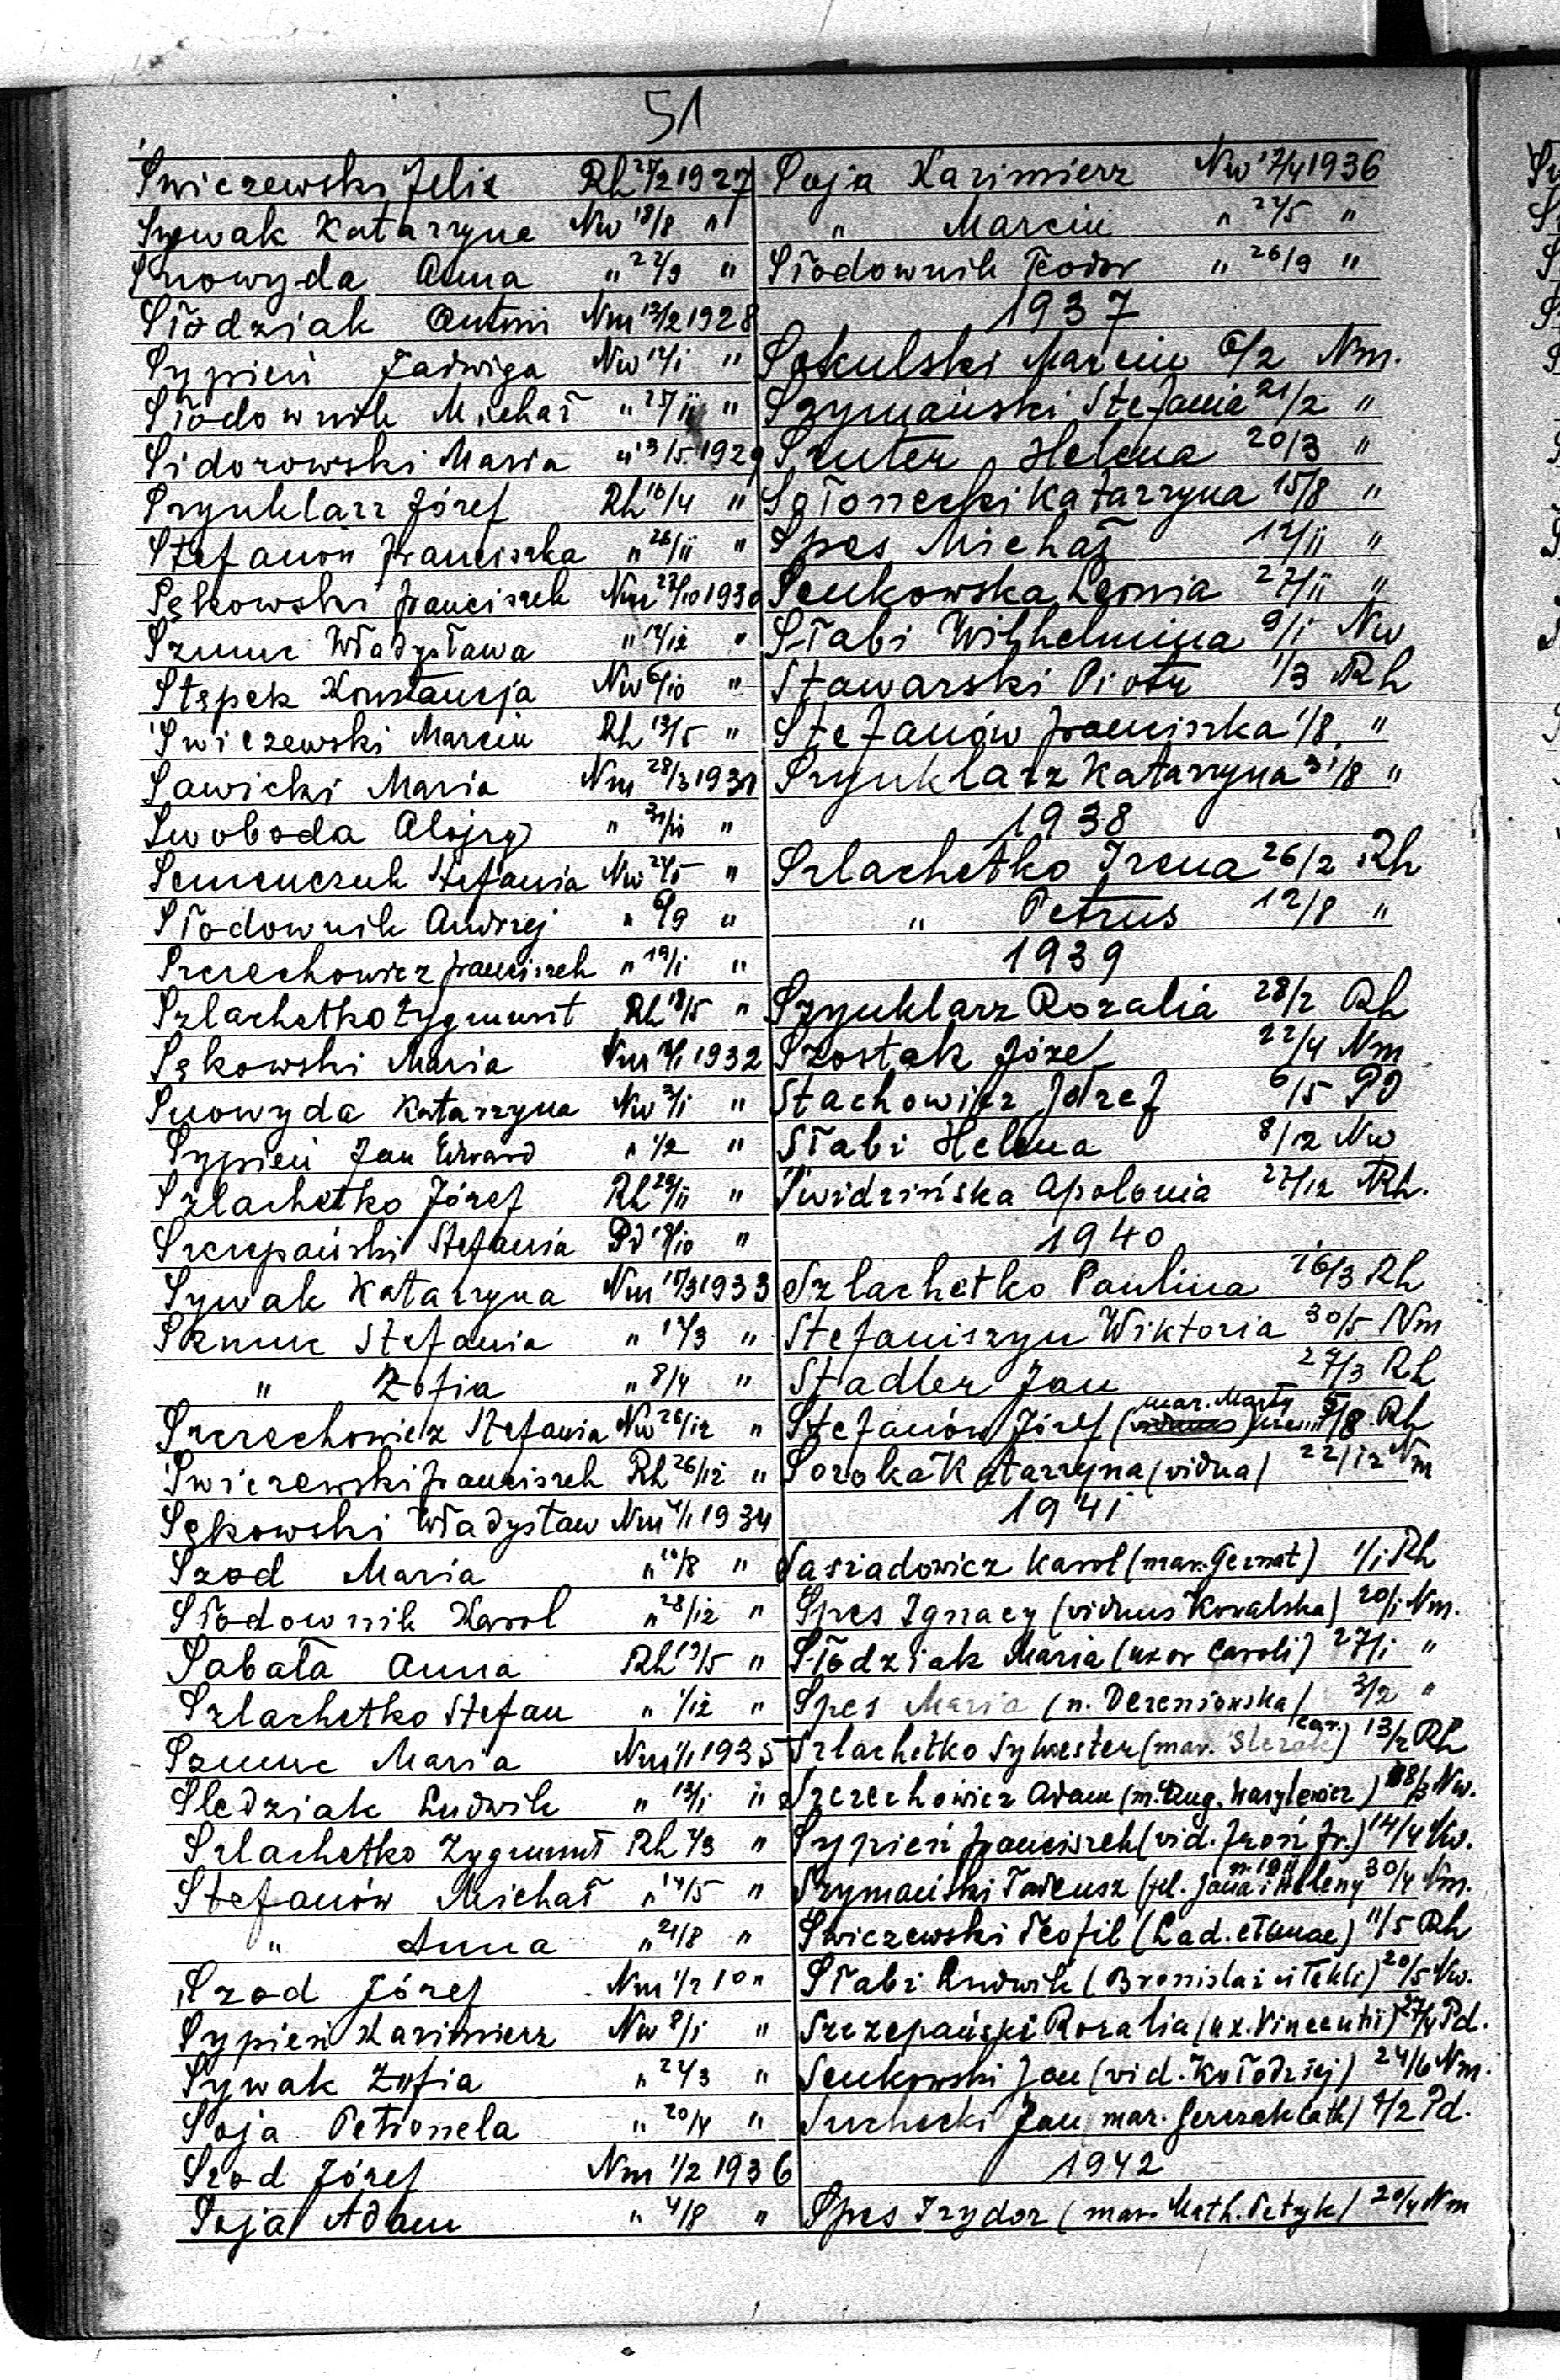 51
Świczewski Felix Rh 27/2 1927
Sywak Katarzyna Nw 18/8 "
Snowyda Anna " 22/9 "
Słodziak Antoni Nm 13/2 1928
Sypień Jadwiga Nw 12/1 "
Słodownik Michał " 27/11 "
Sidorowski Maria " 13/5 1929
Szynklarz Józef Rh 16/4 "
Stefanów Franciszka " 26/11 "
Sękowski Franciszek Nm 27/10 1930
Szmuc Władysława " 12/12 "
Stępek Konstancja Nw 6/10 "
Świczewski Marcin Rh 13/5 "
Sawicki Maria Nm 28/3 1931
Swoboda Alojzy " 31/10 "
Semenczuk Stefania Nw 24/5 "
Słodownik Andrzej " 6/9 "
Szczechowicz Franciszek " 19/1 "
Szlachetko Zygmunt Rh 18/5 "
Sękowski Maria Nm 1932
Snowyda Katarzyna Nw 3/1 "
Sypień Jan Edward " 1/2 "
Szlachetko Józef Rh 20/11 "
Szczepański Stefania Pd 18/10 "
Sywak Katarzyna Nm 15/3 1933
Szmuc Stefania " 12/3 "
" Zofia " 8/4 "
Szczechowicz Stefania Nw 26/12 "
Świczewski Franciszek Rh 26/12 "
Sękowski Władysław Nm 4/1 1934
Szod Maria " 10/8 "
Słodownik Karol " 28/12 "
Sabała Anna Rh 19/5 "
Szlachetko Stefan " 1/12 "
Szmuc Maria Nm 1/1 1935
Śledziak Ludwik " 13/1 "
Szlachetko Zygmunt Rh 7/3 "
Stefanów Michał " 14/5 "
" Anna " 21/8 "
Szod Józef Nm 1/2 10 "
Sypień Kazimierz Nw 8/1 "
Sywak Zofia " 24/3 "
Soja Petronela " 20/4 "
Szod Józef Nm 1/2 1936
Soja Adam " 4/8 "
Soja Kazimierz Nw 17/4 1936
" Marcin " 22/5 "
Słodownik Teodor " 26/9 "
1937
Sokulski Marcin 6/2 Nm.
Szymański Stefania 21/2 "
Szuter Helena 20/3 "
Katarzyna 15/8 "
Spes Michał 12/11 "
Senkowska Leonia 27/11 "
Słabi Wilhelmina 9/1 Nw
Stawarski Piotr 1/3 Rh
Stefanów Franciszka 1/8 "
Szynklarz Katarzyna 31/8 "
1938
Szlachetko Irena 26/2 Rh
" Petrus 12/8 "
1939
Szynklarz Rozalia 28/2 Rh
Szostak Józef 22/4 Nm
Stachowicz Józef 6/5 Pd
Słabi Helena 8/12 Nw
Świdzińska Apolonia 27/12 Rh.
1940
Szlachetko Paulina 16/3 Rh
Stefaniszyn Wiktoria 30/5 Nm
Stadler Jan 27/3 Rh
Stefanów Józef (mar. Marty 5/8 Rh
Soroka Katarzyna (vidua) 22/12 Nm
1941
Sasiadowicz Karol (mar. Gernat) 1/1 Rh
Spes Ignacy (viduus Kowalska) 20/1 Nm.
Słodziak Maria (uxor Caroli) 27/1 "
Spes Maria (n. Dereniowska) 3/2 "
Szlachetko Sylwester (mar. Kar.) 13/2 Rh
Szczechowicz Adam (m. Eug. Wasylewicz) 18/3 Nw.
Sypień Franciszek (vid. Fr.) 14/4 Nw.
Szymański Tadeusz (fil. Jana i Heleny 30/4 Nm.
Świczewski Teofil (Lad. et Annae) 11/5 Rh
Słabi Ludwik (Bronislai et Tekli) 20/5 Nw.
Szczepański Rozalia (ux. Vincentii) 27/4 Pd.
Senkowski Jan (vid. Kołodziej) 24/6 Nm.
Suchecki Jan (mar. Gerczak Cath) 4/2 Pd.
1942
Spes Izydor (mar. Math. Petryk) 20/4 Nm